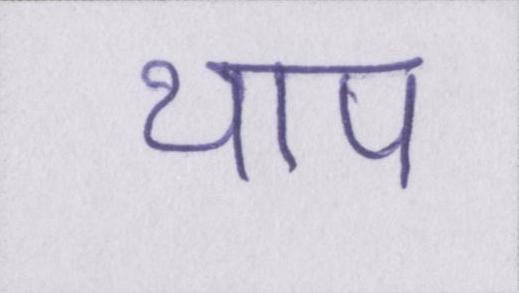 थाप